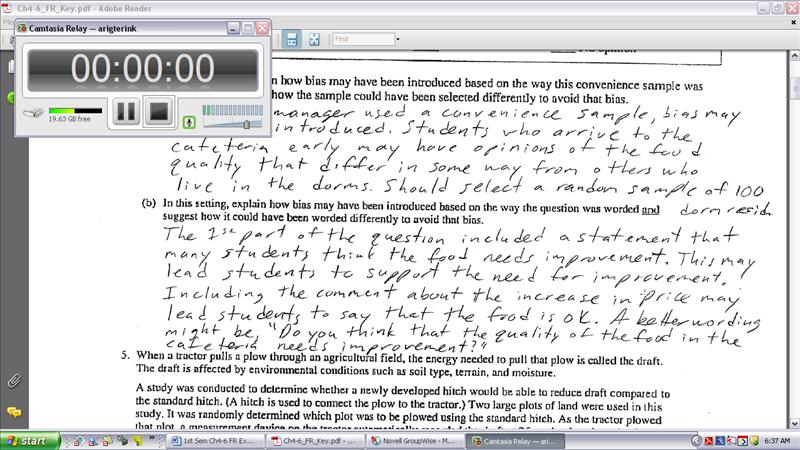 Ch4-6_FR_Key.pdf - Adobe Reader
Camtasia Relay — arigterink
00:00:00
19.63 GB free
Find
No opinion
n how bias may have been introduced based on the way this convenience sample was
how the sample could have been selected differently to avoid that bias.
manager used a convenience sample, bias may
introduced. Students who arrive to the
cafeteria early may have opinions of the food
quality that differ in some way from others who
live in the dorms. Should select a random sample of 100
dorm resid.
(b) In this setting, explain how bias may have been introduced based on the way the question was worded and
suggest how it could have been worded differently to avoid that bias.
The 1st part of the question included a statement that
many students think the food needs improvement. This may
lead students to support the need for improvement.
Including the comment about the increase in price may
lead students to say that the food is OK. A better wording
might be, "Do you think that the quality of the food in the
cafeteria needs improvement?"
5. When a tractor pulls a plow through an agricultural field, the energy needed to pull that plow is called the draft.
The draft is affected by environmental conditions such as soil type, terrain, and moisture.
A study was conducted to determine whether a newly developed hitch would be able to reduce draft compared to
the standard hitch. (A hitch is used to connect the plow to the tractor.) Two large plots of land were used in this
study. It was randomly determined which plot was to be plowed using the standard hitch. As the tractor plowed
that plot, a measurement device on the tractor automatically
start
1st Sem Ch4-6 FR Ex...
Ch4-6_FR_Key.pdf - ...
Novell GroupWise - M...
Camtasia Relay — ari...
6:37 AM